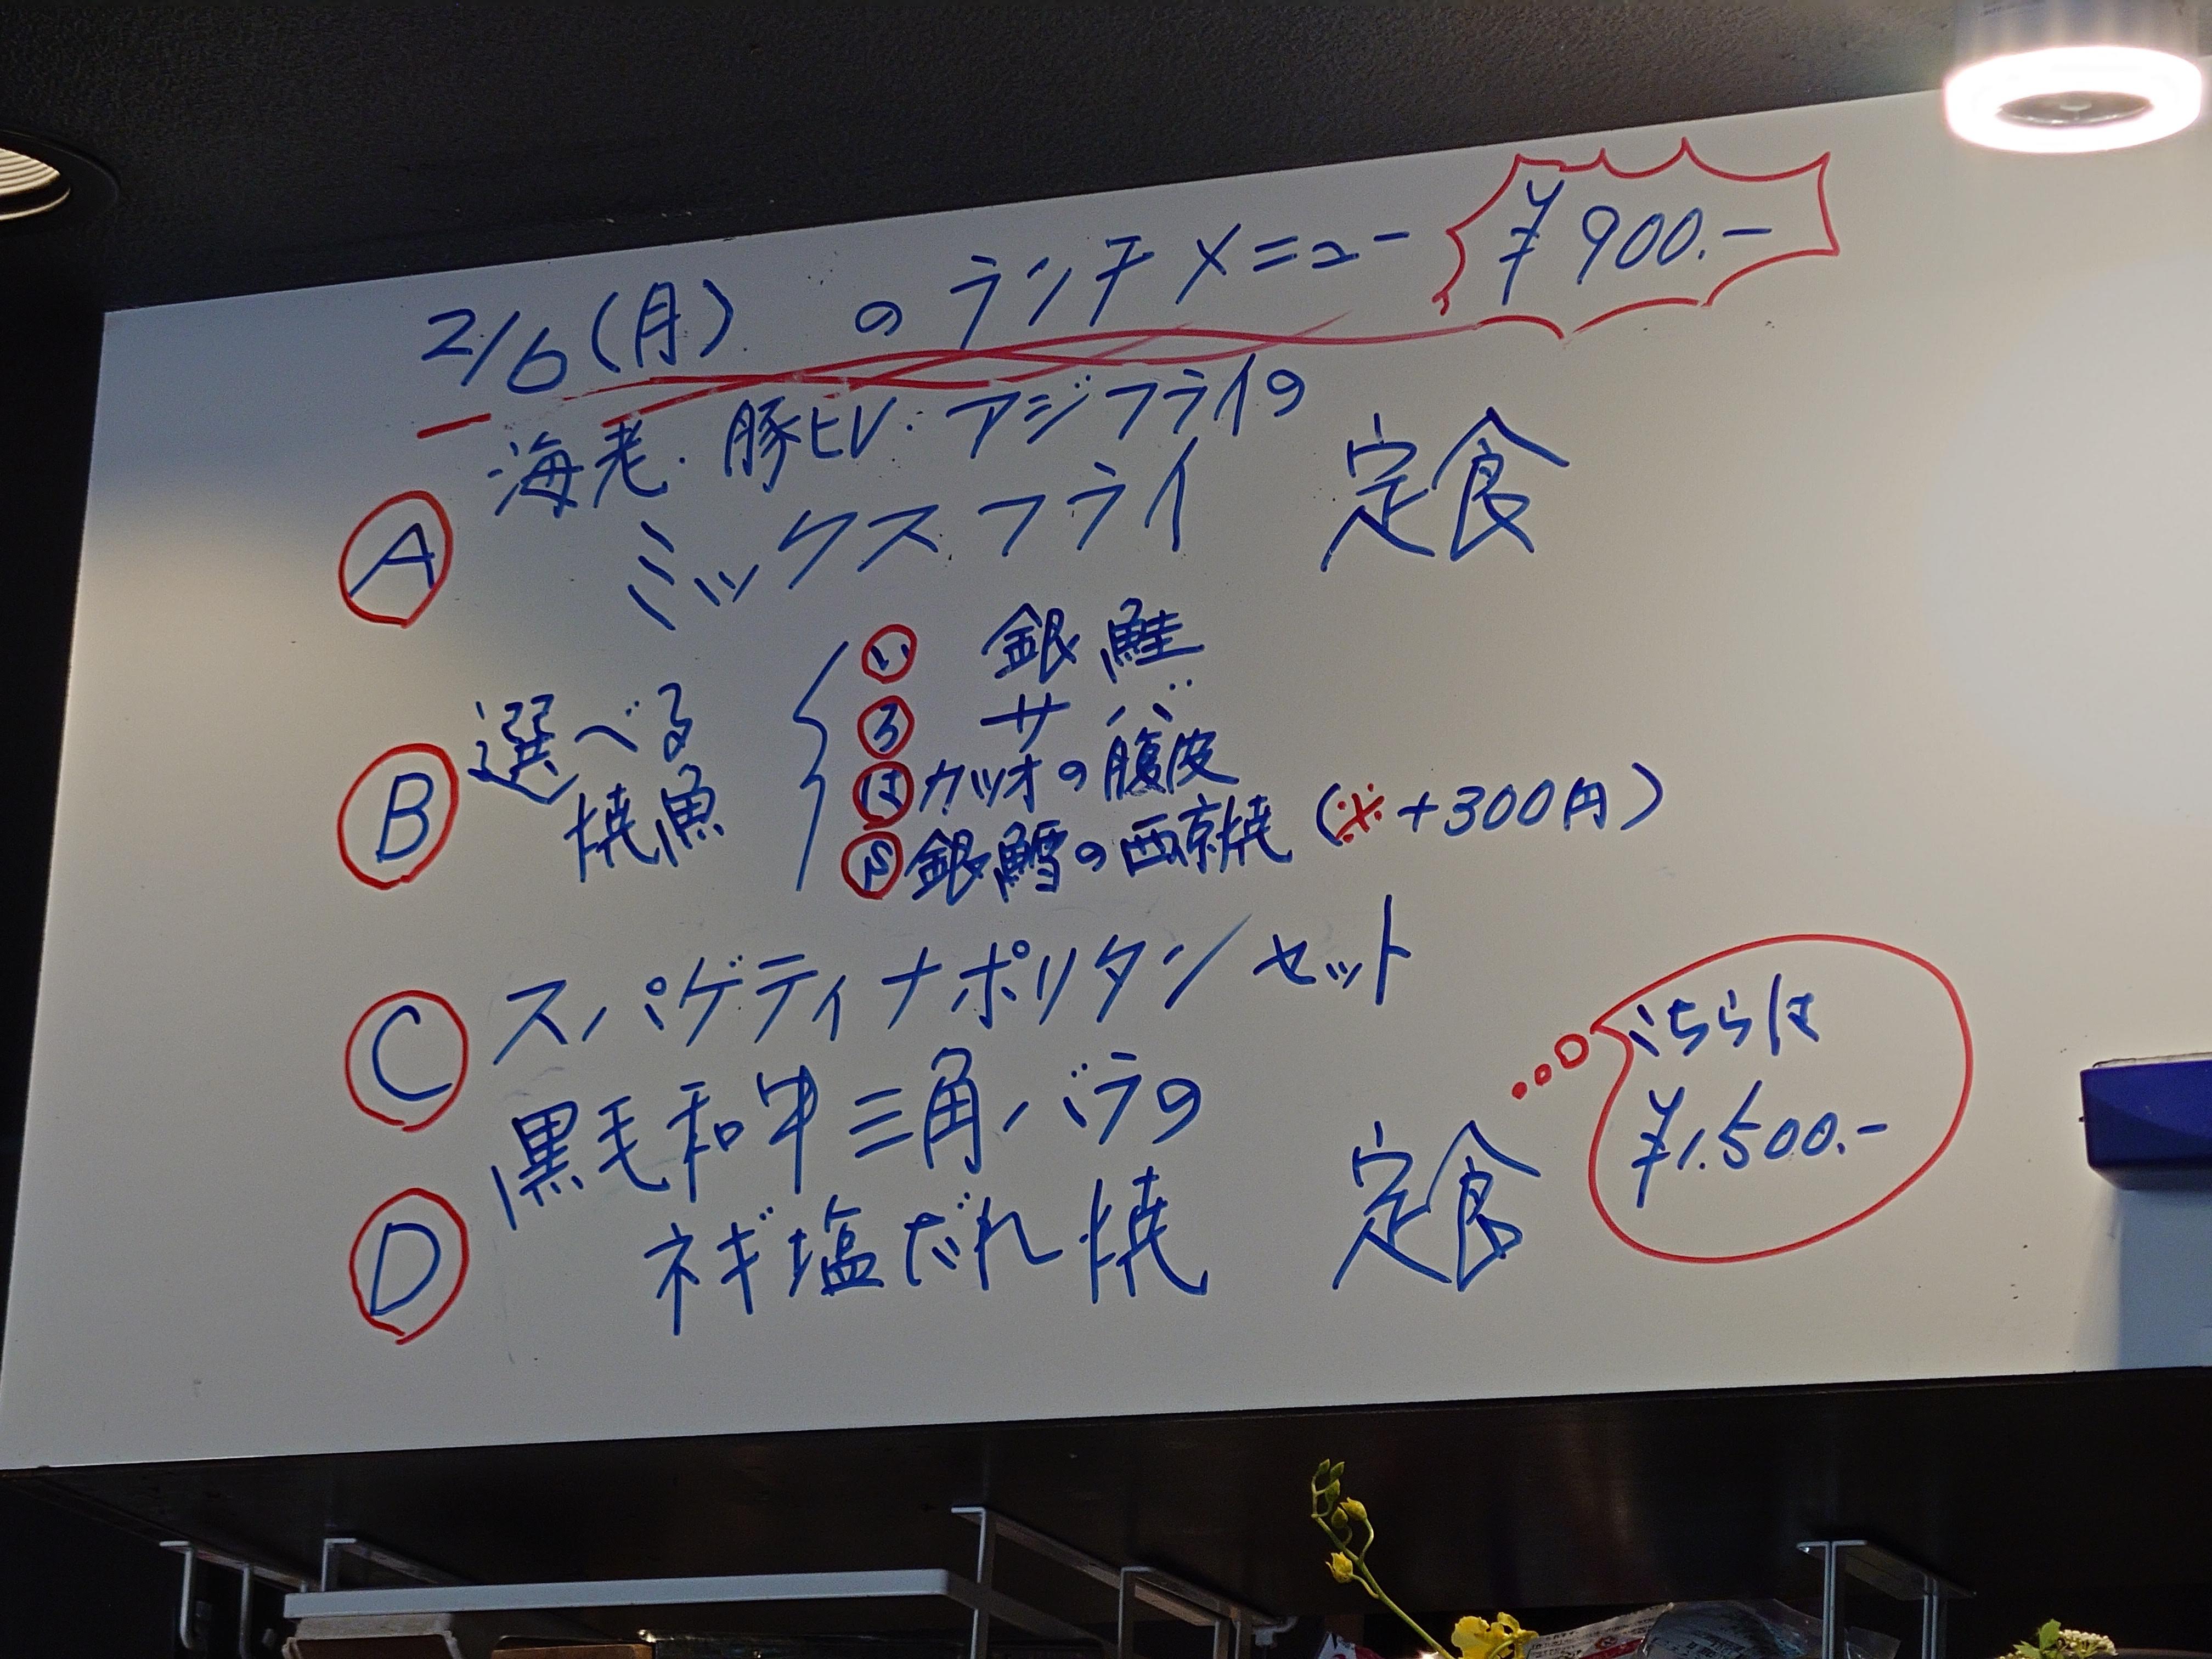 2/6(月) のランチメニュー ¥900.-
海老・豚ヒレ・アジフライの
Ⓐ ミックスフライ 定食
Ⓑ 選べる
焼魚
い 銀鮭
ろ サバ
は カツオの腹皮
に 銀鱈の西京焼 (※+300円)
Ⓒ スパゲティナポリタンセット
黒毛和牛三角バラの
Ⓓ ネギ塩だれ焼 定食
こちらは
¥1.500.-